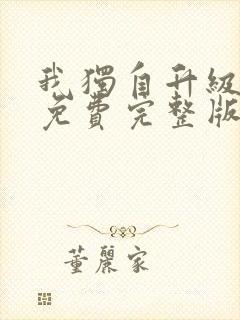 我獨自升級
免費完整版
董麗家